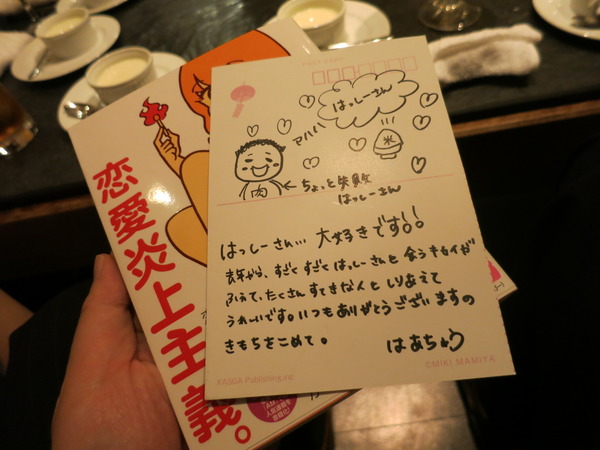 はっしーさん
アハハ
氷
肉
←ちょっと失敗
はっしーさん
はっしーさん… 大好きです!!
去年から、すごくすごくはっしーさんと会うキカイが
ふえて、たくさんすてきな人としりあえて
うれしいです。いつもありがとうございますの
きもちをこめて。
はあちゅう
KASGA Publishing.inc
©MIKI MAMIYA
恋愛炎上主義。